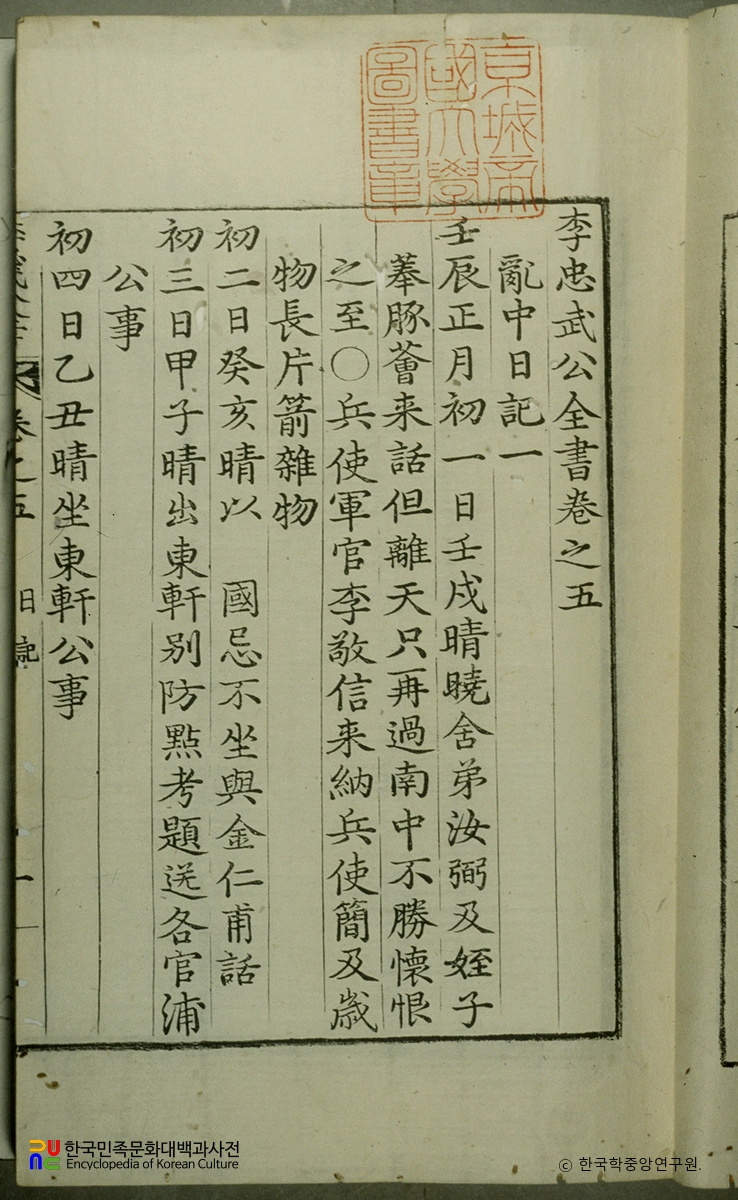 京城帝
國大學
圖書章
李忠武公全書卷之五
亂中日記一
壬辰正月初一日壬戌晴曉舍弟汝弼及姪子
菶豚薈来話但離天只再過南中不勝懷恨
之至○兵使軍官李敬信来納兵使簡及歲
物長片箭雜物
初二日癸亥晴以 國忌不坐與金仁甫話
初三日甲子晴出東軒别防點考題送各官浦
公事
初四日乙丑晴坐東軒公事
卷之五 日記 一
한국민족문화대백과사전
Encyclopedia of Korean Culture
© 한국학중앙연구원.